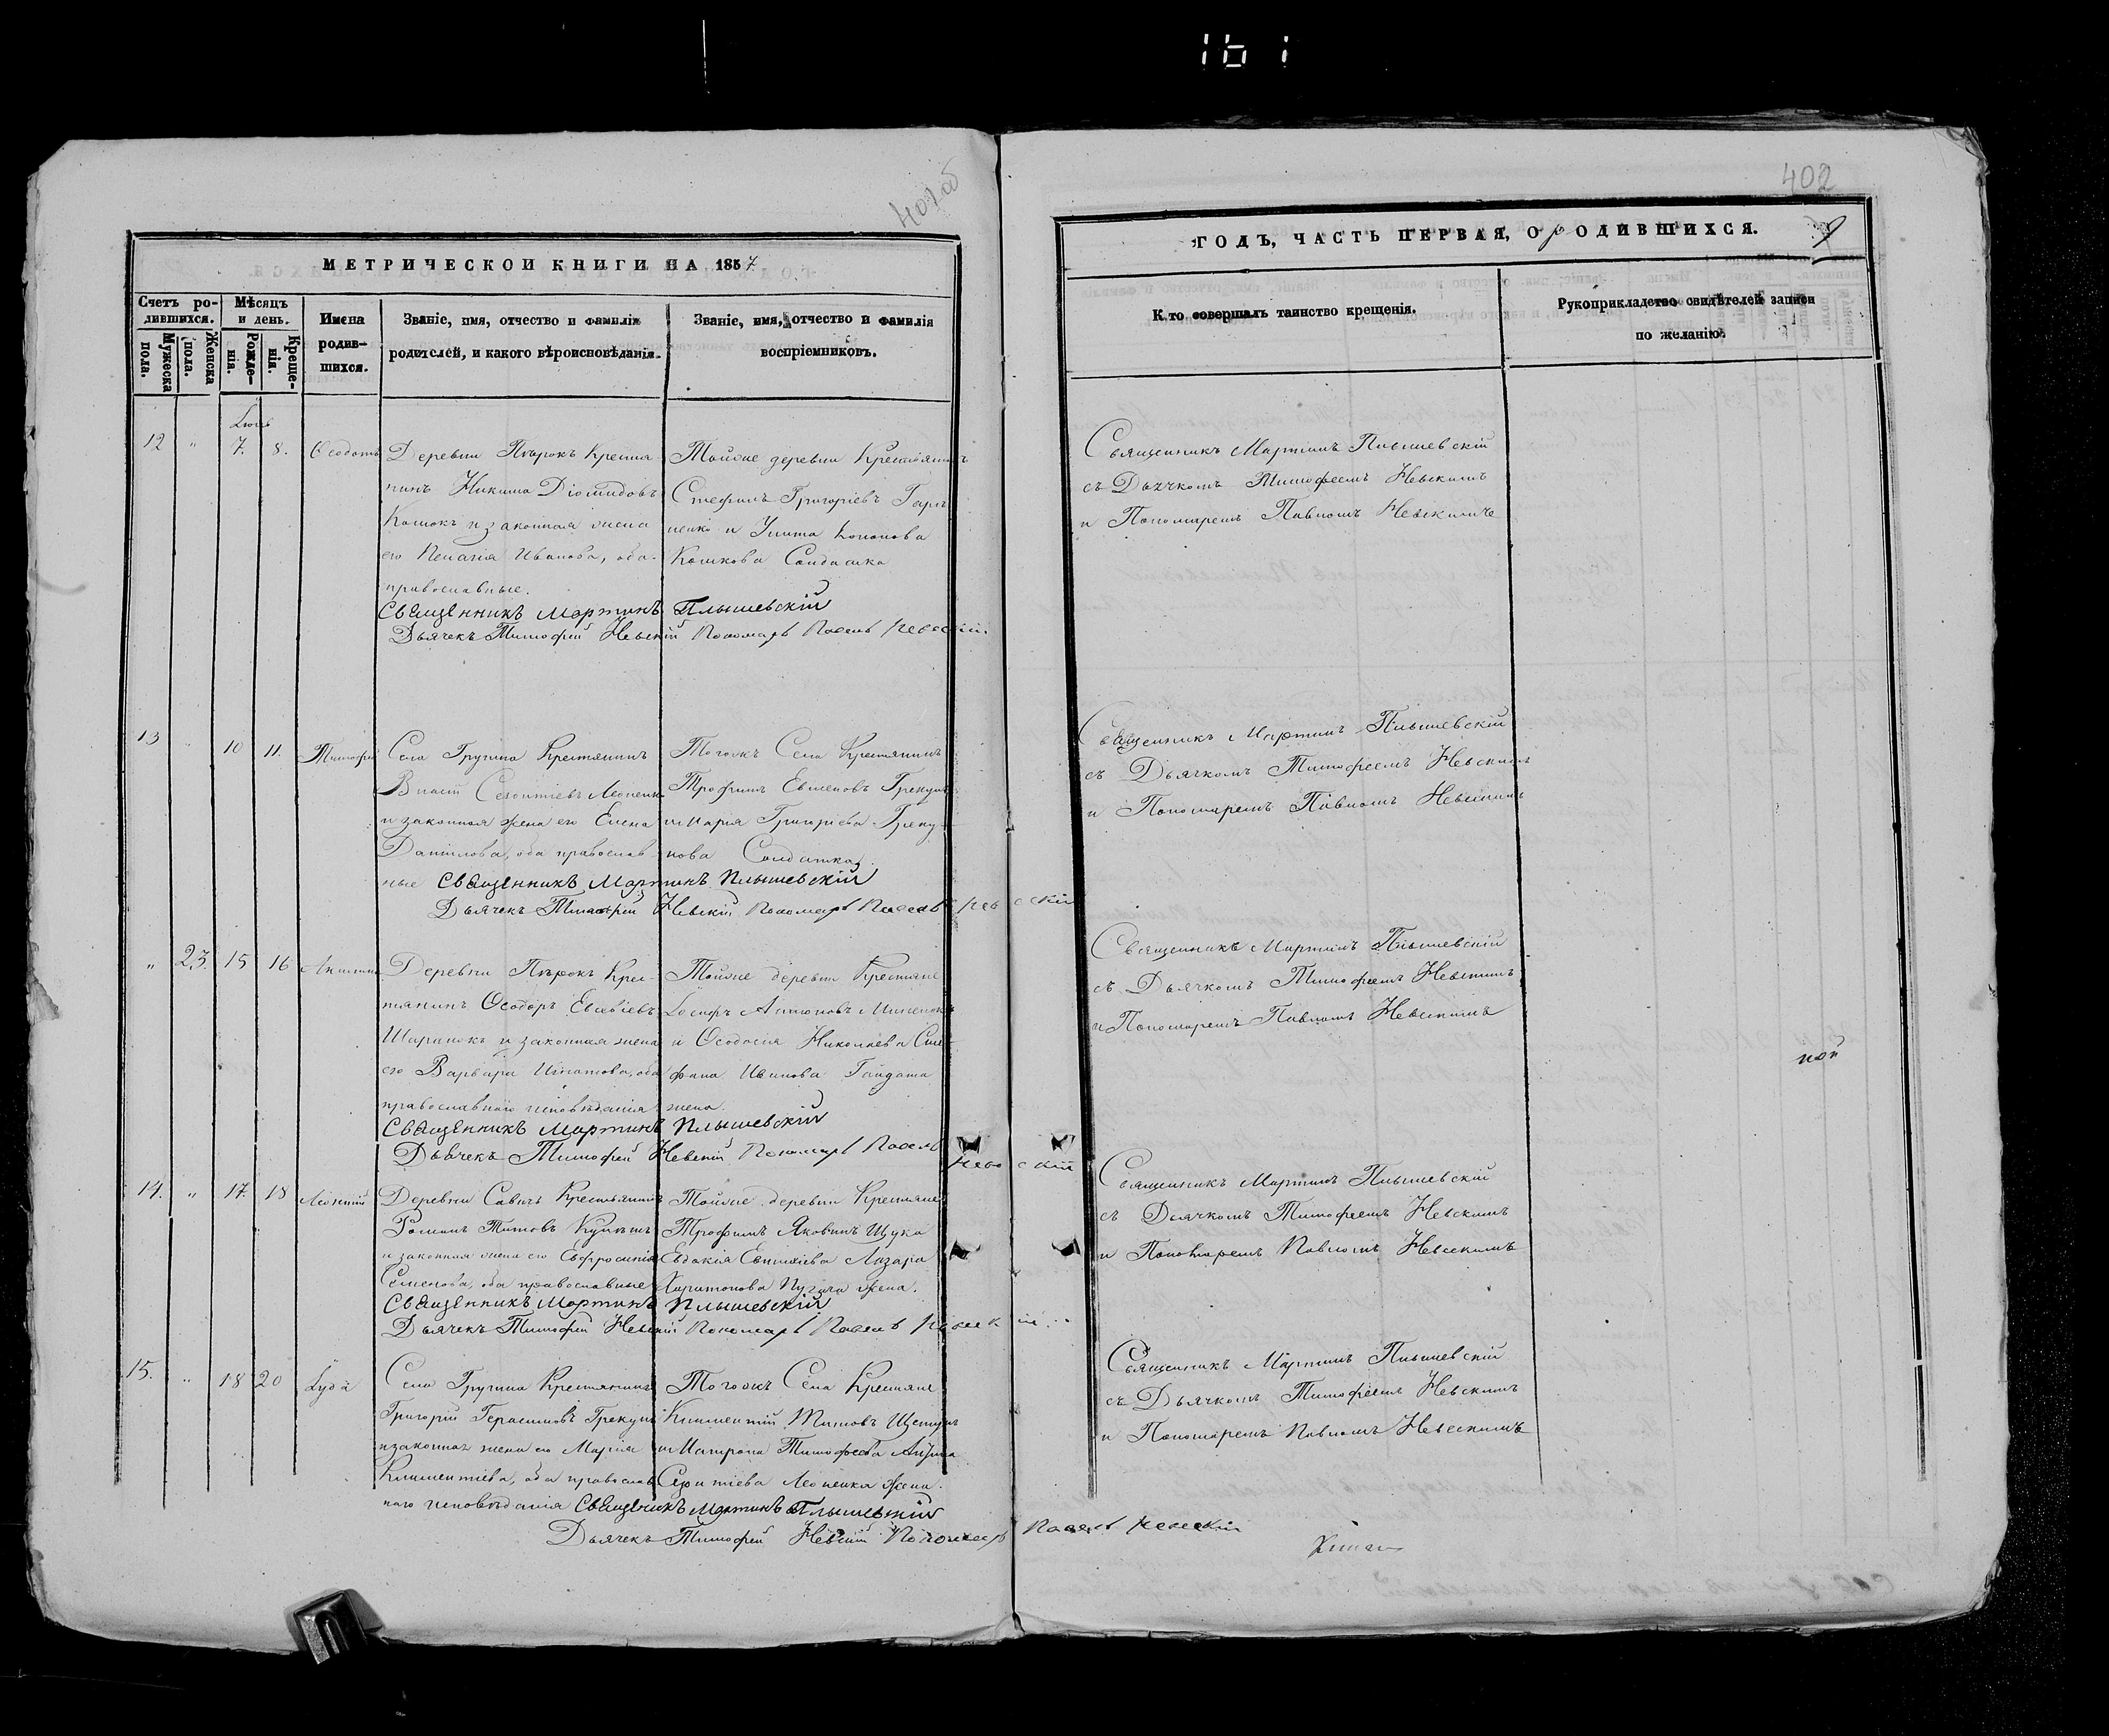 161
401об
МЕТРИЧЕСКОЙ КНИГИ НА 1857
Счетъ ро-
дившихся.
Мѣсяцъ
и день.
Имена
родив-
шихся.
Званіе, имя, отчество и фамилія
родителей, и какого вѣроисповѣданія.
Званіе, имя, отчество и фамилія
воспріемниковъ.
Мужеска
пола.
Женска
пола.
Рожде-
нія.
Креще-
нія.
12 " 7. 8. Ѳеодотъ
Деревни Пѣрокъ Крестья-
нинъ Никита Діомидовъ
и законная жена
его Пелагія Иванова, оба
православные.
Тойже деревни Крестьянинъ
Стефанъ Григоріевъ
и Улита Кононова
Кошкова Солдатка
Священникъ Мартинъ Плышевскій
Дьячекъ Тимофей Невскій Пономарь Павелъ Невскій
13 " 10 11. Тимофей
Села Грушна Крестянинъ
Власій Леоненко
и законная жена его Елена
Данилова, оба православ-
ные
Тогожъ Села Крестянинъ
Трофимъ Евменовъ Грекунъ
и Марія Григорьева Греку-
нова Солдатка.
Священникъ Мартинъ Плышевскій
Дьячекъ Тимофей Невскій Пономарь Павелъ Невскій
" 23. 15 16
Деревни Пѣрокъ Крес-
тянинъ Ѳеодоръ Евсевіевъ
и законная жена
его Варвара Игнатова, оба
православнаго исповѣданія
Тойже деревни Крестяне
Іосифъ Антоновъ
и Ѳеодосія Николаева Сте-
фана Иванова Гайдата
жена.
Священникъ Мартинъ Плышевскій
Дьячекъ Тимофей Невскій Пономарь Павелъ Невскій
14. " 17. 18 Леонтій
Деревни Савичъ Крестьянинъ
Романъ Титовъ
и законная жена его Евфросинія
Семенова, оба православные
Тойже деревни Крестяне
Трофимъ Яковинъ Щука
Евдокія Лазаря
Харитонова жена.
Священникъ Мартинъ Плышевскій
Дьячекъ Тимофей Невскій Пономарь Павелъ Невскій
15. " 18 20 Іуда
Села Грушна Крестянинъ
Григорій Герасимовъ Грекунъ
и законная жена его Марія
Климентіева, оба православ-
наго исповѣданія
Тогожъ Села Крестяне
Климентій Титовъ
и Матрона Тимофеева
Леоненка жена.
Священникъ Мартинъ Плышевскій
Дьячекъ Тимофей Невскій Пономарь Павелъ Невскій
402
ГОДЪ, ЧАСТЬ ПЕРВАЯ, О РОДИВШИХСЯ.
9
Кто совершалъ таинство крещенія.
Рукоприкладство свидѣтелей записи
по желанію.
Священникъ Мартинъ Плышевскій
съ Дьячкомъ Тимофеемъ Невскимъ
и Пономаремъ Павломъ Невскимъ
Священникъ Мартинъ Плышевскій
съ Дьячкомъ Тимофеемъ Невскимъ
и Пономаремъ Павломъ Невскимъ
Священникъ Мартинъ Плышевскій
съ Дьячкомъ Тимофеемъ Невскимъ
и Пономаремъ Павломъ Невскимъ
ной
Священникъ Мартинъ Плышевскій
съ Дьячкомъ Тимофеемъ Невскимъ
и Пономаремъ Павломъ Невскимъ
Священникъ Мартинъ Плышевскій
съ Дьячкомъ Тимофеемъ Невскимъ
и Пономаремъ Павломъ Невскимъ